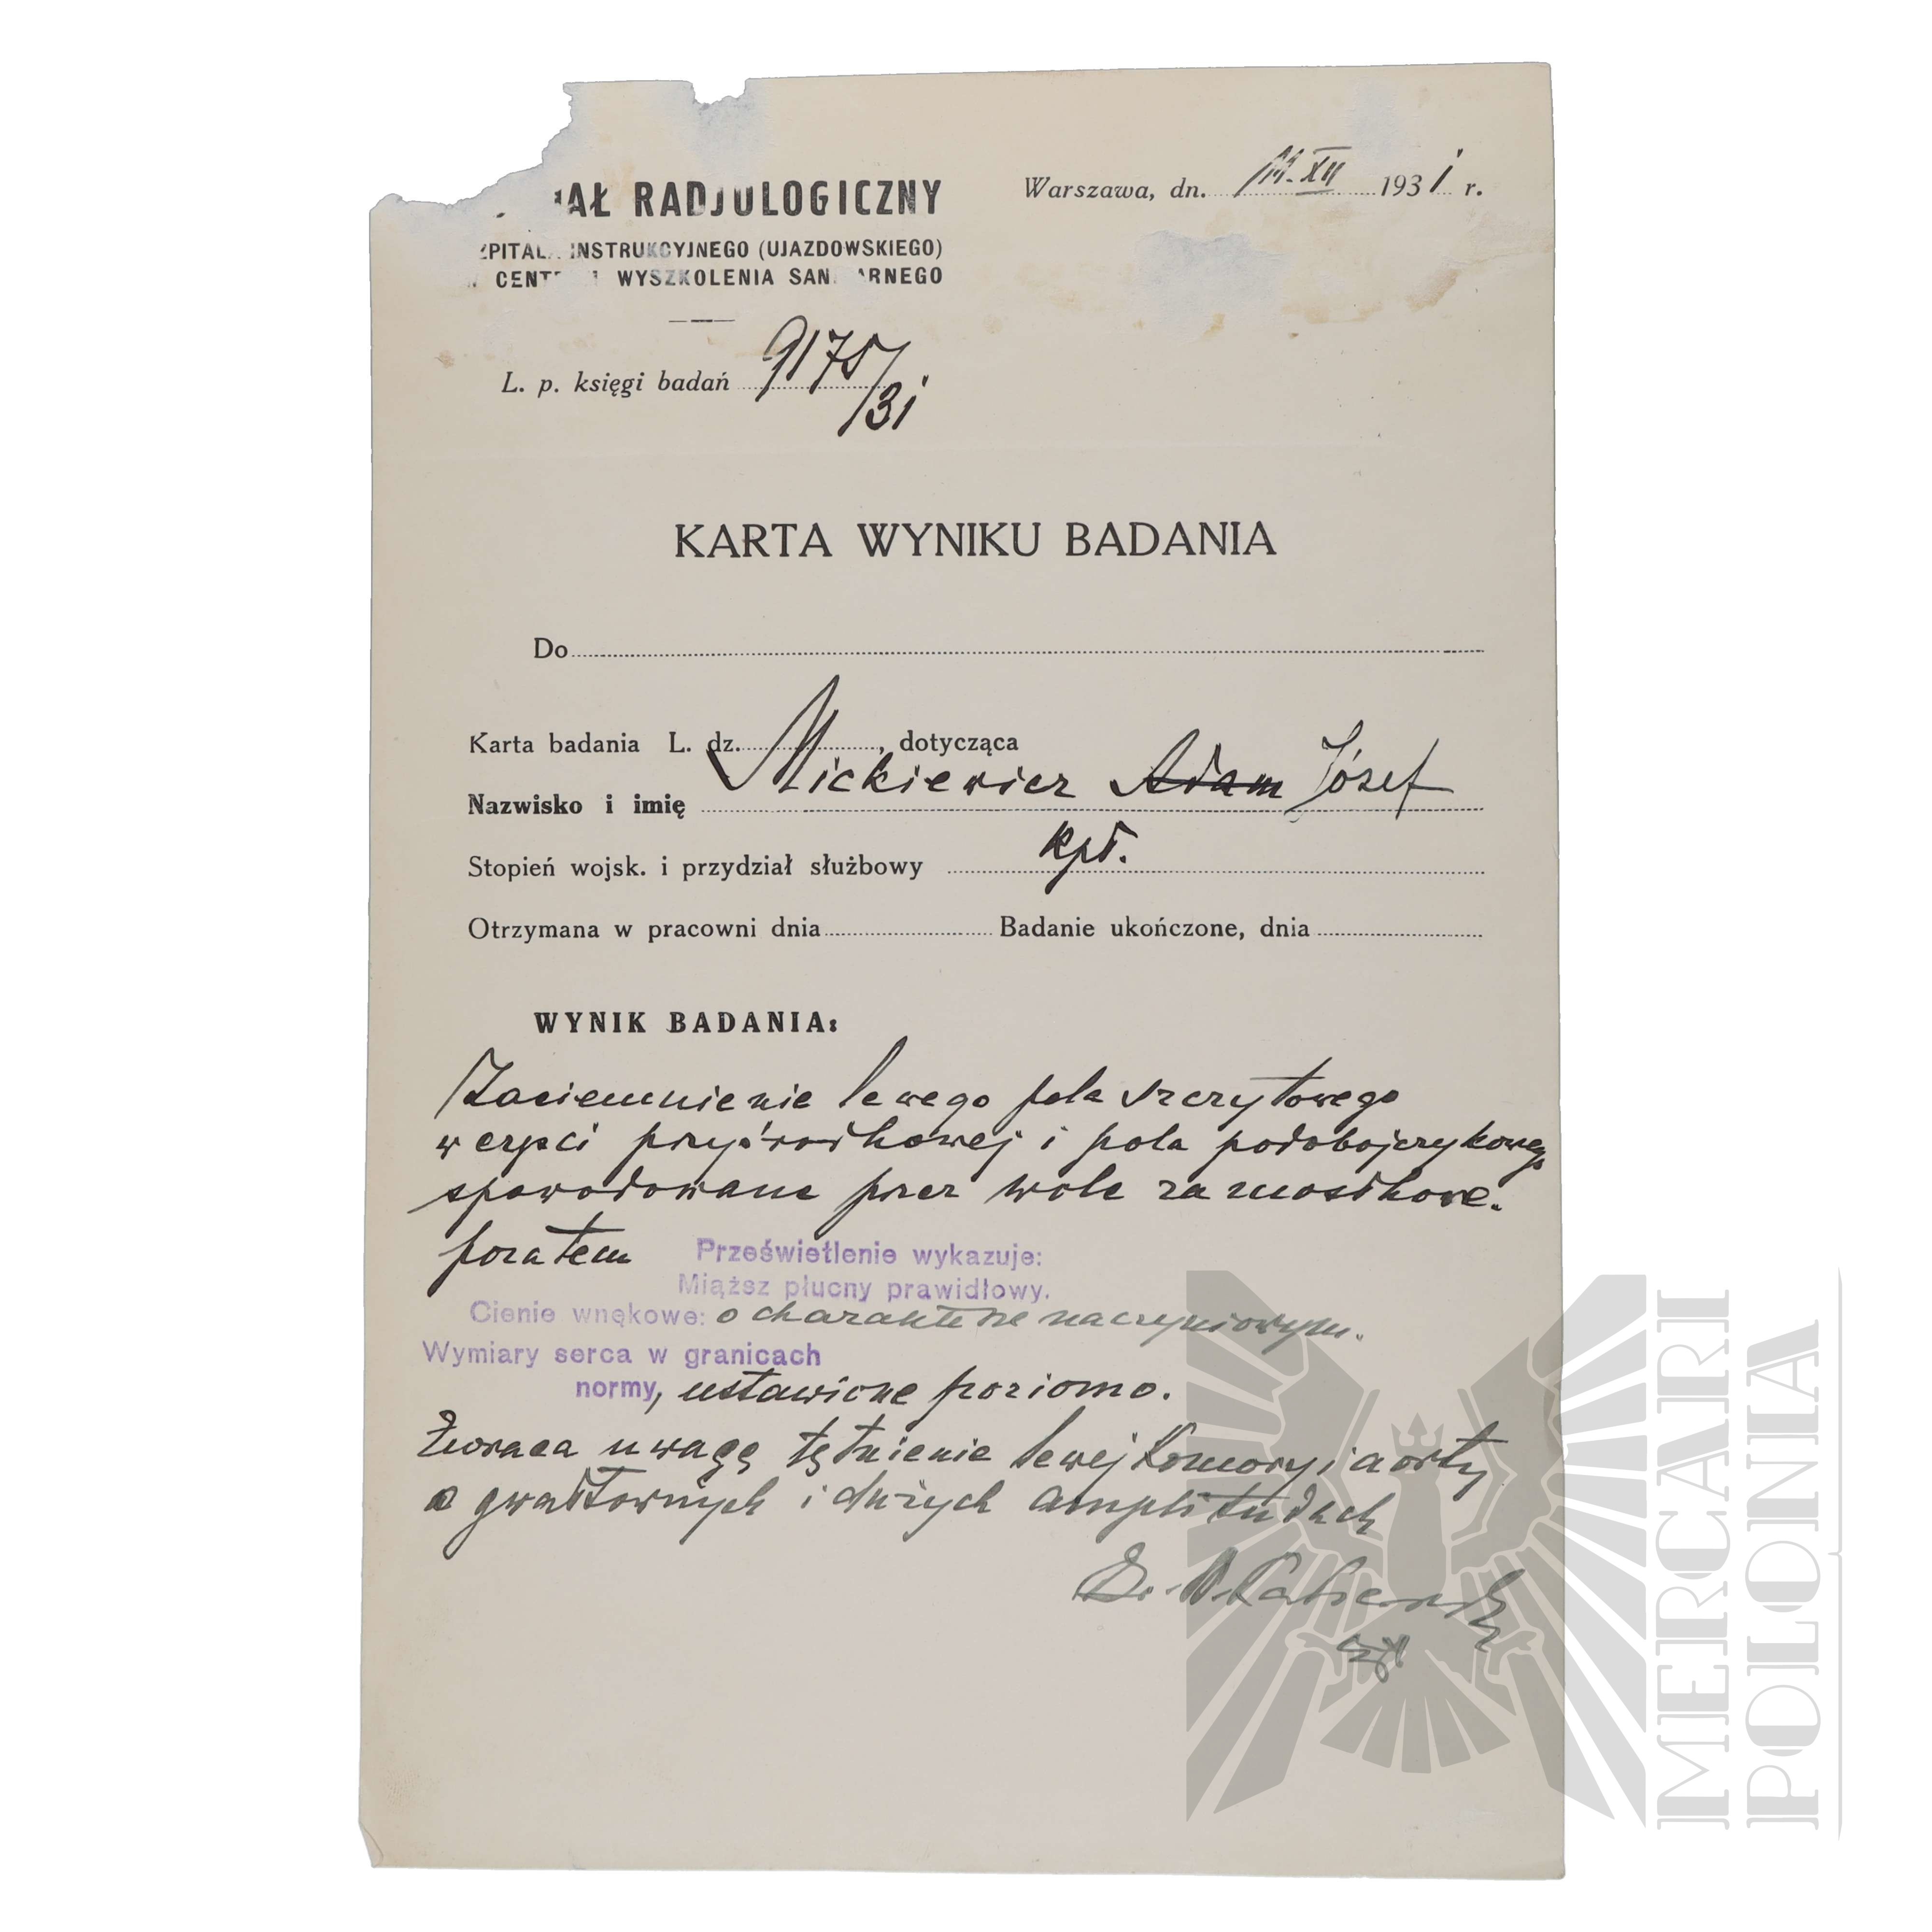 IAŁ RADJOLOGICZNY
Warszawa, dn. 11-XII 1931 r.
ZPITALA INSTRUKCYJNEGO (UJAZDOWSKIEGO)
CENT WYSZKOLENIA SAN ARNEGO
L. p. księgi badań 9175/31
KARTA WYNIKU BADANIA
Do
Karta badania L. dz. , dotycząca
Nazwisko i imię Mickiewicz Adam Józef
Stopień wojsk. i przydział służbowy kpt.
Otrzymana w pracowni dnia Badanie ukończone, dnia
WYNIK BADANIA:
Zaciemnienie lewego pola szczytowego
w części przyśrodkowej i pola podobojczykowego
spowodowane przez wole zamostkowe.
pozatem Prześwietlenie wykazuje:
Miąższ płucny prawidłowy.
Cienie wnękowe: o charakterze naczyniowym.
Wymiary serca w granicach
normy, ustawione poziomo.
Zwraca uwagę tętnienie lewej komory i aorty
o gwałtownych i dużych amplitudach
MERCARI
POLONIA